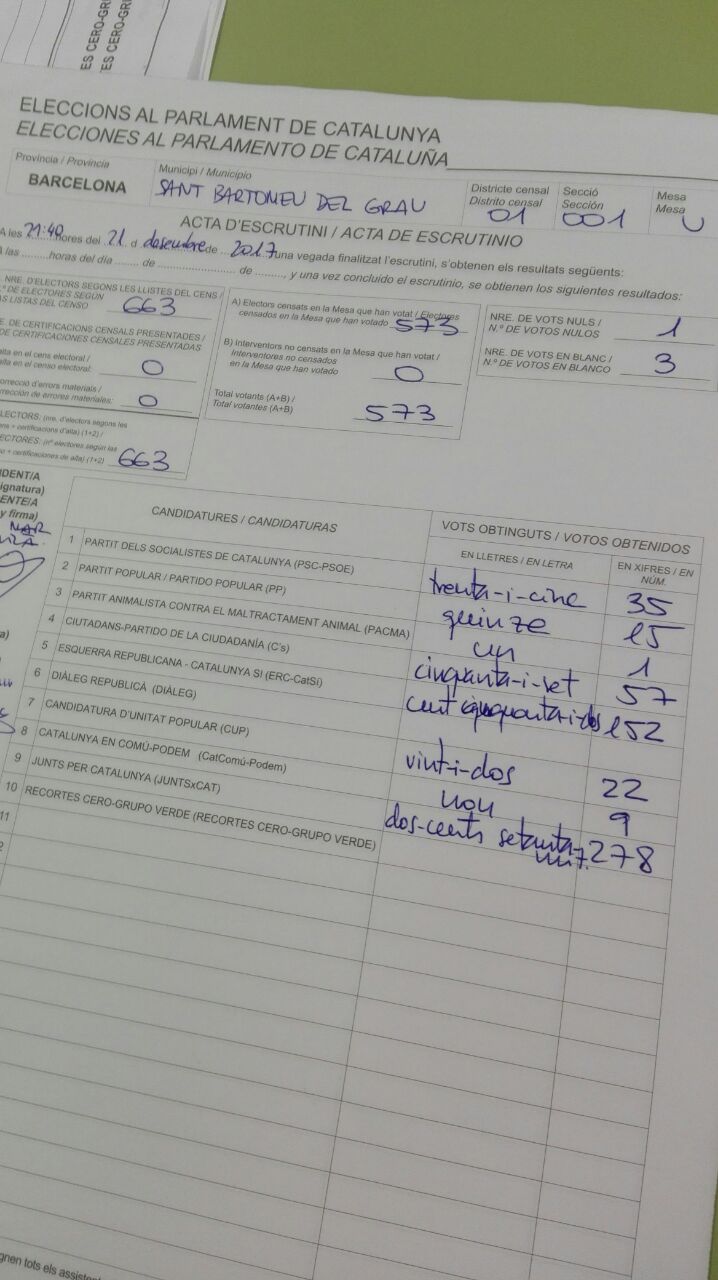 ES CERO-GRU
ES CERO-GRU
ELECCIONS AL PARLAMENT DE CATALUNYA
ELECCIONES AL PARLAMENTO DE CATALUÑA
Província / Provincia
BARCELONA
Municipi / Municipio
SANT BARTOMEU DEL GRAU
Districte censal
Distrito censal
01
Secció
Sección
001
Mesa
Mesa
U
ACTA D'ESCRUTINI / ACTA DE ESCRUTINIO
A les 21:40 hores del 21 d desembre de 2017 una vegada finalitzat l'escrutini, s'obtenen els resultats següents:
A las ........horas del día ....... de ................ de ........., y una vez concluido el escrutinio, se obtienen los siguientes resultados:
NRE. D'ELECTORS SEGONS LES LLISTES DEL CENS /
º DE ELECTORES SEGÚN
AS LISTAS DEL CENSO
663
E. DE CERTIFICACIONS CENSALS PRESENTADES /
DE CERTIFICACIONES CENSALES PRESENTADAS
alta en el cens electoral /
alta en el censo electoral:
0
orrecció d'errors materials /
rrección de errores materiales:
0
LECTORS: (nre. d'electors segons les
ens + certificacions d'alta) (1+2) /
ECTORES: (nº electores según las
so + certificaciones de alta) (1+2)
663
A) Electors censats en la Mesa que han votat / Electores
censados en la Mesa que han votado
573
B) Interventors no censats en la Mesa que han votat /
Interventores no censados
en la Mesa que han votado
0
Total votants (A+B) /
Total votantes (A+B)
573
NRE. DE VOTS NULS /
N.º DE VOTOS NULOS
1
NRE. DE VOTS EN BLANC /
N.º DE VOTOS EN BLANCO
3
IDENT/A
ignatura)
ENTE/A
y firma)
CANDIDATURES / CANDIDATURAS
VOTS OBTINGUTS / VOTOS OBTENIDOS
EN LLETRES / EN LETRA
EN XIFRES / EN
NÚM.
1 PARTIT DELS SOCIALISTES DE CATALUNYA (PSC-PSOE)
trenta-i-cinc 35
2 PARTIT POPULAR / PARTIDO POPULAR (PP)
quinze 15
3 PARTIT ANIMALISTA CONTRA EL MALTRACTAMENT ANIMAL (PACMA)
un 1
4 CIUTADANS-PARTIDO DE LA CIUDADANÍA (C's)
cinquanta-i-set 57
5 ESQUERRA REPUBLICANA - CATALUNYA SI (ERC-CatSí)
cent cinquanta-i-dos 152
6 DIÀLEG REPUBLICÀ (DIÀLEG)
7 CANDIDATURA D'UNITAT POPULAR (CUP)
vint-i-dos 22
8 CATALUNYA EN COMÚ-PODEM (CatComú-Podem)
nou 9
9 JUNTS PER CATALUNYA (JUNTSxCAT)
dos-cents setanta-vuit. 278
10 RECORTES CERO-GRUPO VERDE (RECORTES CERO-GRUPO VERDE)
11
2
gnen tots els assisten